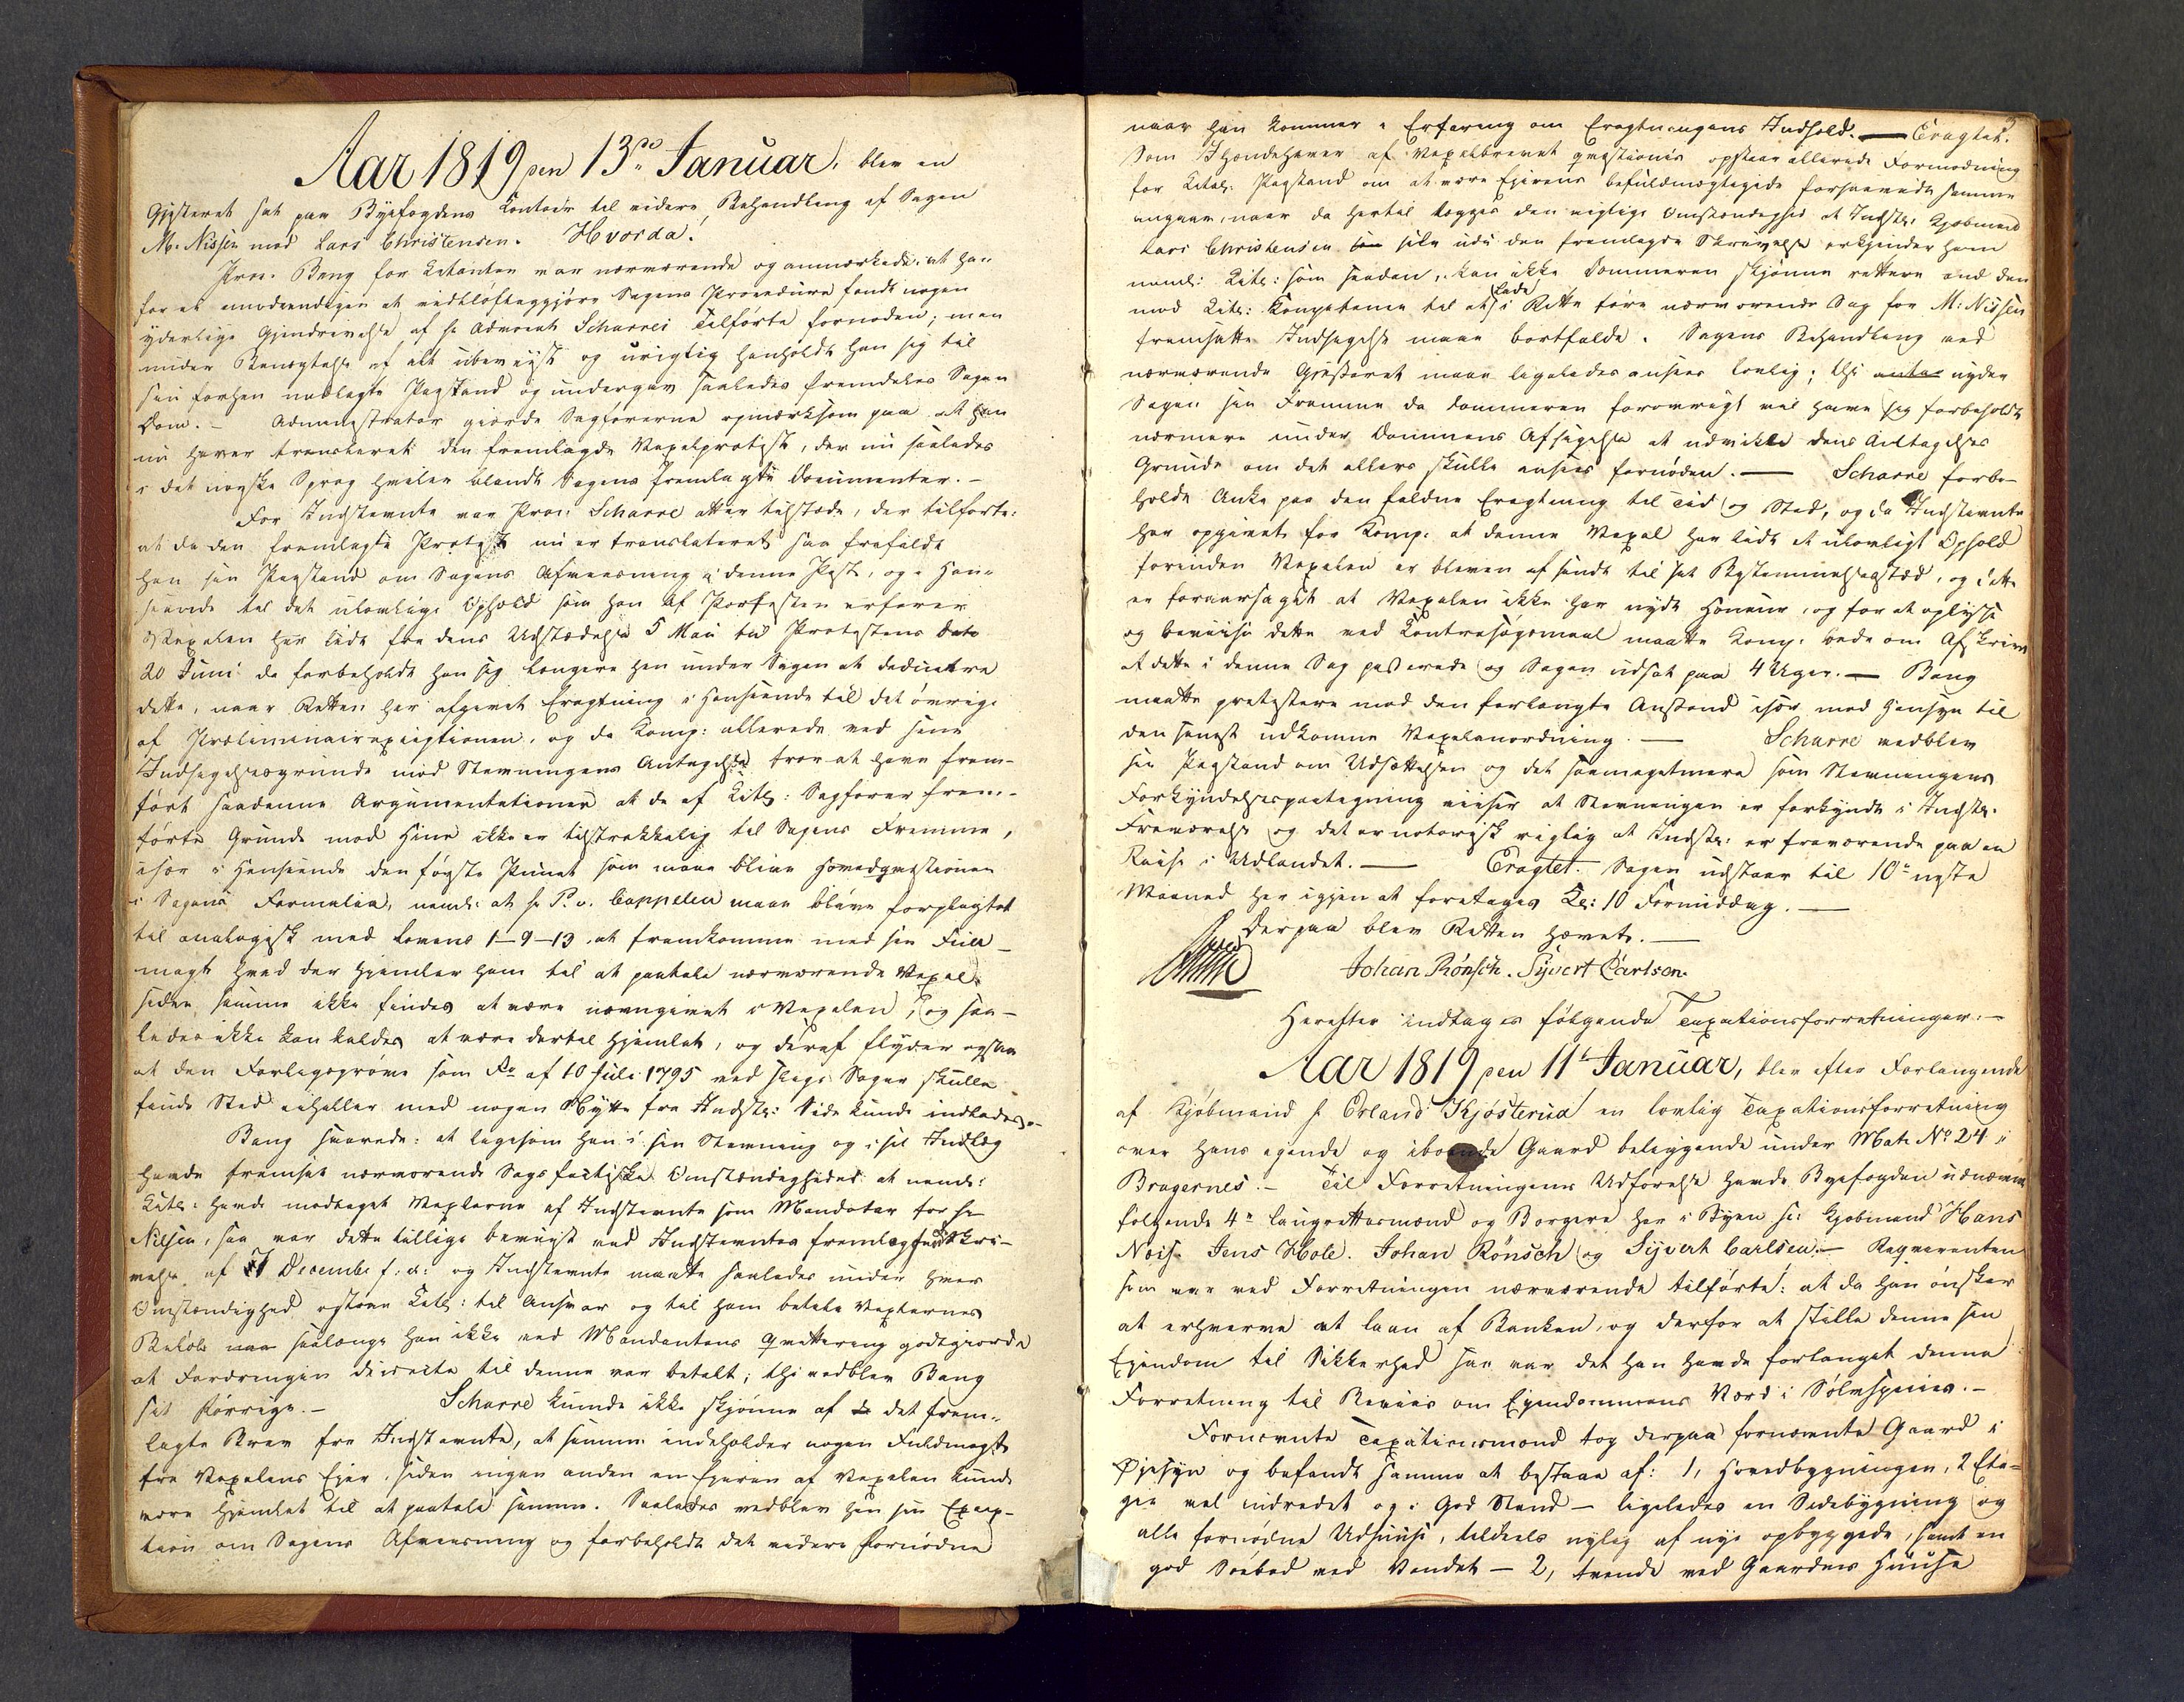 Aar 1819 den 13de Januar, blev en
Gjesteret sat paa Byefogdens Contoir til videre Behandling af Sagen
M. Nissen mod Lars Christensen. Hvorda!
Proc. Bang for Citanten var nærværende og anmærkede: at han
for at unødvendigen at vidtløftiggjøre Sagens Procedure fandt nogen
yderlige Gjendrivelse af hr Advocat Scharres Tilførte fornøden; men
under Benægtelse af alt ubeviist og urigtig henholdt han sig til
sin forhen nedlagte Paastand og undergav saaledes fremdeles Sagen
Dom. — Administrator giorde Sagførerne opmærksom paa at han
nu haver translateret den fremlagde Vexelprotest, der nu saaledes
i det norske Sprog hviler blandt Sagens fremlagte Documenter. —
For Indstevnte var Proc: Scharre atter tilstæde, der tilførte:
at da den fremlagte Protest nu er translateret saa frafaldt
han sin Paastand om Sagens Afviisning i denne Post, og i Hen-
seende til det ulovlige Ophold som han af Protesten erfarer
Vexelen har lidt fra dens Udstædelse 5 Mai til Protestens Dato
20 Juni da forbeholdt han sig længere hen under Sagen at deducere
dette, naar Retten har afgivet Eragtning i Henseende til det øvrige
af Præliminairexceptionen, og da Komp: allerede ved sine
Indsigelsesgrunde mod Stevningens Antagelse troer at have frem-
ført saadanne Argumentationer at de af Citis: Sagfører frem-
førte Grunde mod hine ikke er tilstrækkelig til Sagens Fremme,
især i Henseende den første Punct som maae blive Hovedqvæstionen
i Sagens Formalia, nemlig at hr P. v. Cappelen maae blive forpligtet
til analogisk med Lovens 1-9-13 at fremkomme med sin Fuld-
magt hvad der hjemler ham til at paatale nærværende Vexel
siden samme ikke findes at være navngivet i Vexelen, og saa-
ledes ikke kan kaldes at være dertil hjemlet, og deraf flyder ogsaa
at den Forligsprøve som Fr. af 10 Juli 1795 ved slige Sager skulle
finde Sted eiheller med nogen Nytte fra Indstr: Side kunde indlades. —
Bang svarede: at ligesom han i sin Stevning og i sit Indlæg
havde fremsat nærværende Sags factiske Omstændigheder at nemlig
Citis: havde modtaget Vexlerne af Indstevnte som Mandatar for hr
Nissen, saa var dette tillige beviist ved Indstevntes fremlagte Skri-
velse af 31 December f: A: og Indstevnte maatte saaledes under hver
Omstændighed Citis: til Ansvar og til ham betale Vexlernes
Beløb naar saalænge han ikke ved Mandantens Qvittering godtgiorde
at Fordringen directe til denne var betalt; thi vedblev Bang
sit Forrige. — Scharre kunde ikke skjønne af det frem-
lagte Brev fra Indstevnte, at samme indeholder nogen Fuldmagt
fra Vexelens Ejer, siden ingen anden en Ejeren af Vexelen kunde
være hjemlet til at paatale samme. Saaledes vedblev han sin Excep-
tion om Sagens Afviisning og forbeholdt det videre fornødne
naar han kommer i Erfaring om Eragtningens Indhold. — Eragtet.
Som Ihændehaver af Vexelbrevet qvæstionis opstaar allerede Formodning
for Citis: Paastand om at være Ejerens befuldmægtigede forsaavidt samme
angaar, naar da hertil lægges den vigtige Omstændighed at Indstr. Kjøbmand
Lars Christensen selv udi den fremlagde Skrivelse erkjender ham
nemlig: Citis: som saadan, kan ikke Dommeren skjønne rettere end den
mod Citis: Competence til at lade i Rette føre nærværende Sag for M. Nissen
fremsatte Indsigelse maae bortfalde. Sagens Behandling ved
nærværende Gjesteret maae ligeledes ansees lovlig; thi nyder
Sagen sin Fremme da Dommeren forøvrigt vil have sig forbeholdt
nærmere under Dommens Afsigelse at udvikle dens Antagelses
Grunde om det ellers skulle ansees fornøden. — Scharre forbe-
holdt Anke paa den faldne Eragtning til Tid og Sted, og da Indstevnte
har opgivet for Komp: at denne Vexel har lidt et ulovligt Ophold
forinden Vexelen er bleven afsendt til sit Bestemmelsessted, og dette
er foraarsaget at Vexelen ikke har nydt Honeur, og for at oplyse
og beviise dette ved Contrasøgsmaal maatte Komp: bede om Afskrivt
af dette i denne Sag passerede og Sagen udsat paa 4 Uger. — Bang
maatte protestere mod den forlangte Anstand især med Hensyn til
den senest udkomne Vexelanordning. — Scharre vedblev
sin Paastand om Udsættelsen og det saameget mere som Stevningens
Forkyndelsespaategning viiser at Stevningen er forkyndt i Indstr.
Fraværelse og det er notorisk rigtig at Indstr. er fraværende paa en
Reise i Udlandet. — Eragtet. Sagen udstaar til 10de neste
Maaned her igjen at foretages Kl: 10 Formiddag. —
Derpaa blev Retten hævet. —
Johan Rönsch. Syvert Carlsen.
Herefter indtages følgende Taxationsforretninger. —
Aar 1819 den 11te Januar, blev efter Forlangende
af Kjøbmand hr Erland Kjøsterud en lovlig Taxationsforretning
over hans ejende og iboende Gaard beliggende under Matr No 24 i
Bragernes. — Til Forretningens Udførelse havde Byefogden udnævnt
følgende 4re Laugrettesmænd og Borgere her i Byen hr: Kjøbmand Hans
Nois. Jens Hole. Johan Rönsch og Syvert Carlsen. — Reqvirenten
som var ved Forretningen nærværende tilførte: at da han ønsker
at erhverve et Laan af Banken, og derfor at stille denne sin
Ejendom til Sikkerhed saa var det han havde forlanget denne
Forretning til Beviis om Ejendommens Værd i Sølvspecies. —
Fornævnte Taxationsmænd tog derpaa fornævnte Gaard i
Øjesyn og befandt samme at bestaae af: 1, Hovedbygningen, 2 Eta-
ger vel indredet og i god Stand — ligeledes en Sidebygning og
alle fornødne Udhuuse, tildeels nylig af nye opbyggede, samt en
god Søebod ved Vandet — 2, tvende ved Gaardens Huuse